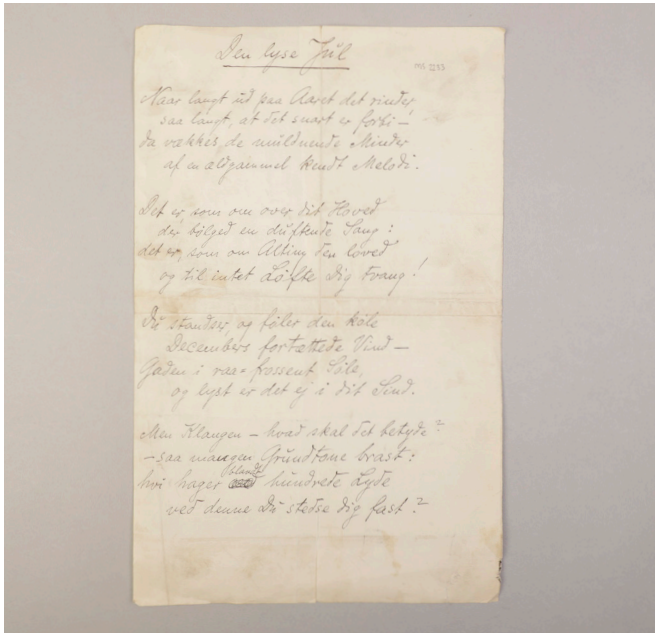 Den lyse Jul
Naar langt ud paa Aaret det rinder,
saa langt, at det snart er forbi –
da vækkes de mildnende Minder
af en ældgammel kendt Melodi.
Det er, som om over dit Hoved
der bølged en duftende Sang:
det er, som om Alting den loved
og til intet Løfte Dig tvang!
Du standser, og føler den køle
Decembers fortættede Vind –
Gaden i raa-frossent Søle,
og lyst er det ej i dit Sind.
Men Klangen – hvad skal det betyde?
– saa mangen Grundtone brast:
hvi hager blandt hundrede Lyde
ved denne Du stedse dig fast?